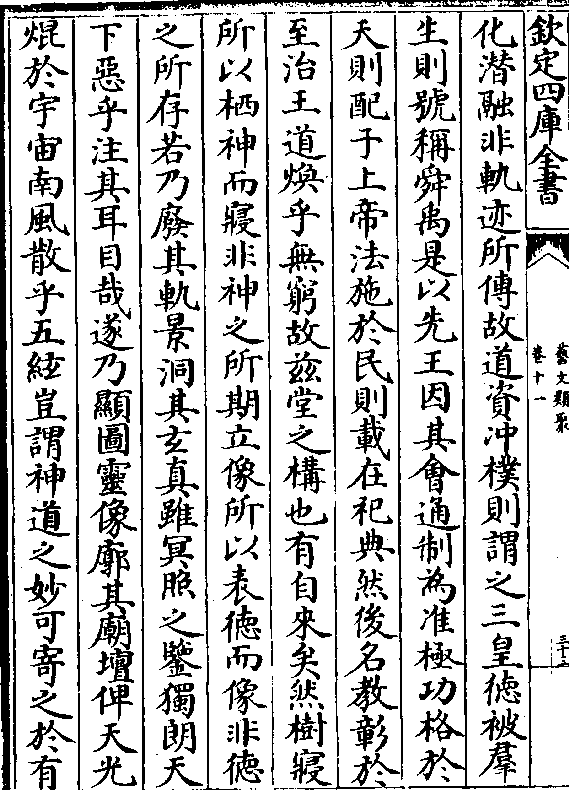 欽定四庫全書
藝文類聚
卷十一
化潜融非軌迹所傳故道資冲樸則謂之三皇德被羣
生則號稱舜禹是以先王因其會通制為准極功格於
天則配于上帝法施於民則載在祀典然後名教彰於
至治王道煥乎無窮故茲堂之構也有自來矣然樹寢
所以栖神而寢非神之所期立像所以表德而像非德
之所存若乃廢其軌景洞其玄真雖冥照之鑒獨朗天
下惡乎注其耳目哉遂乃顯圖靈像廓其廟壇俾天光
焜於宇宙南風散乎五絃豈謂神道之妙可寄之於有